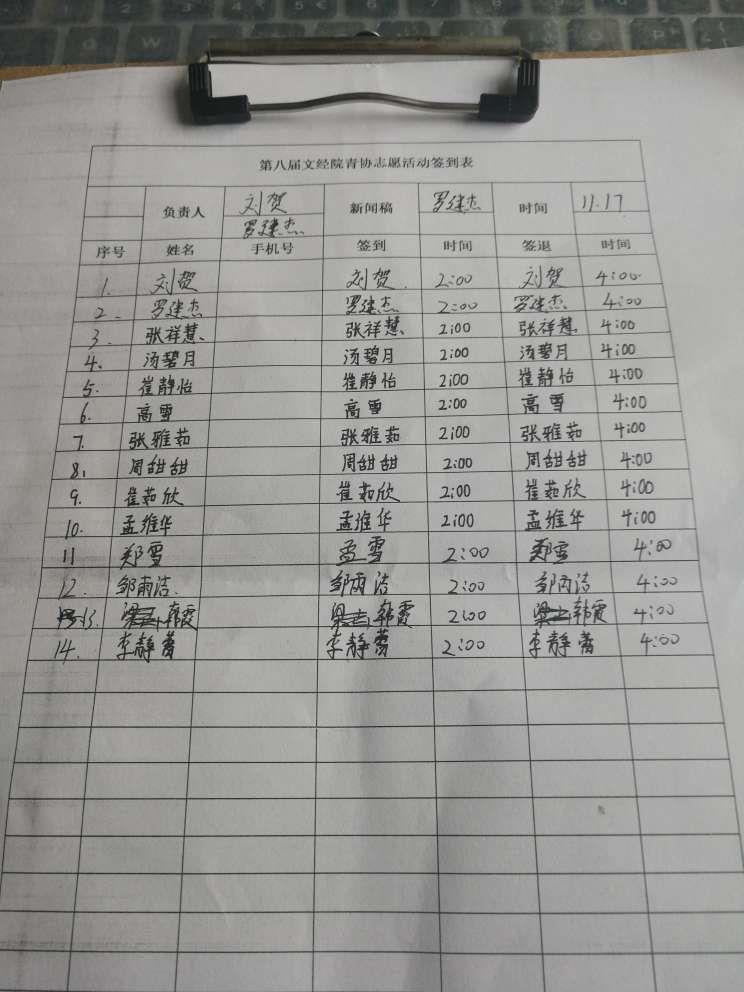 第八届文经院青协志愿活动签到表
负责人 刘贺 新闻稿 罗建杰 时间 11.17
罗建杰
序号 姓名 手机号 签到 时间 签退 时间
1. 刘贺 刘贺 2:00 刘贺 4:00
2. 罗建杰 罗建杰 2:00 罗建杰 4:00
3. 张祥慧 张祥慧 2:00 张祥慧 4:00
4. 汤碧月 汤碧月 2:00 汤碧月 4:00
5. 崔静怡 崔静怡 2:00 崔静怡 4:00
6. 高雪 高雪 2:00 高雪 4:00
7. 张雅茹 张雅茹 2:00 张雅茹 4:00
8. 周甜甜 周甜甜 2:00 周甜甜 4:00
9. 崔茹欣 崔茹欣 2:00 崔茹欣 4:00
10. 孟维华 孟维华 2:00 孟维华 4:00
11 郑雪 孟雪 2:00 郑雪 4:00
12. 邹雨洁 邹雨洁 2:00 邹雨洁 4:00
13. 韩霞 韩霞 2:00 韩霞 4:00
14. 李静蕾 李静蕾 2:00 李静蕾 4:00